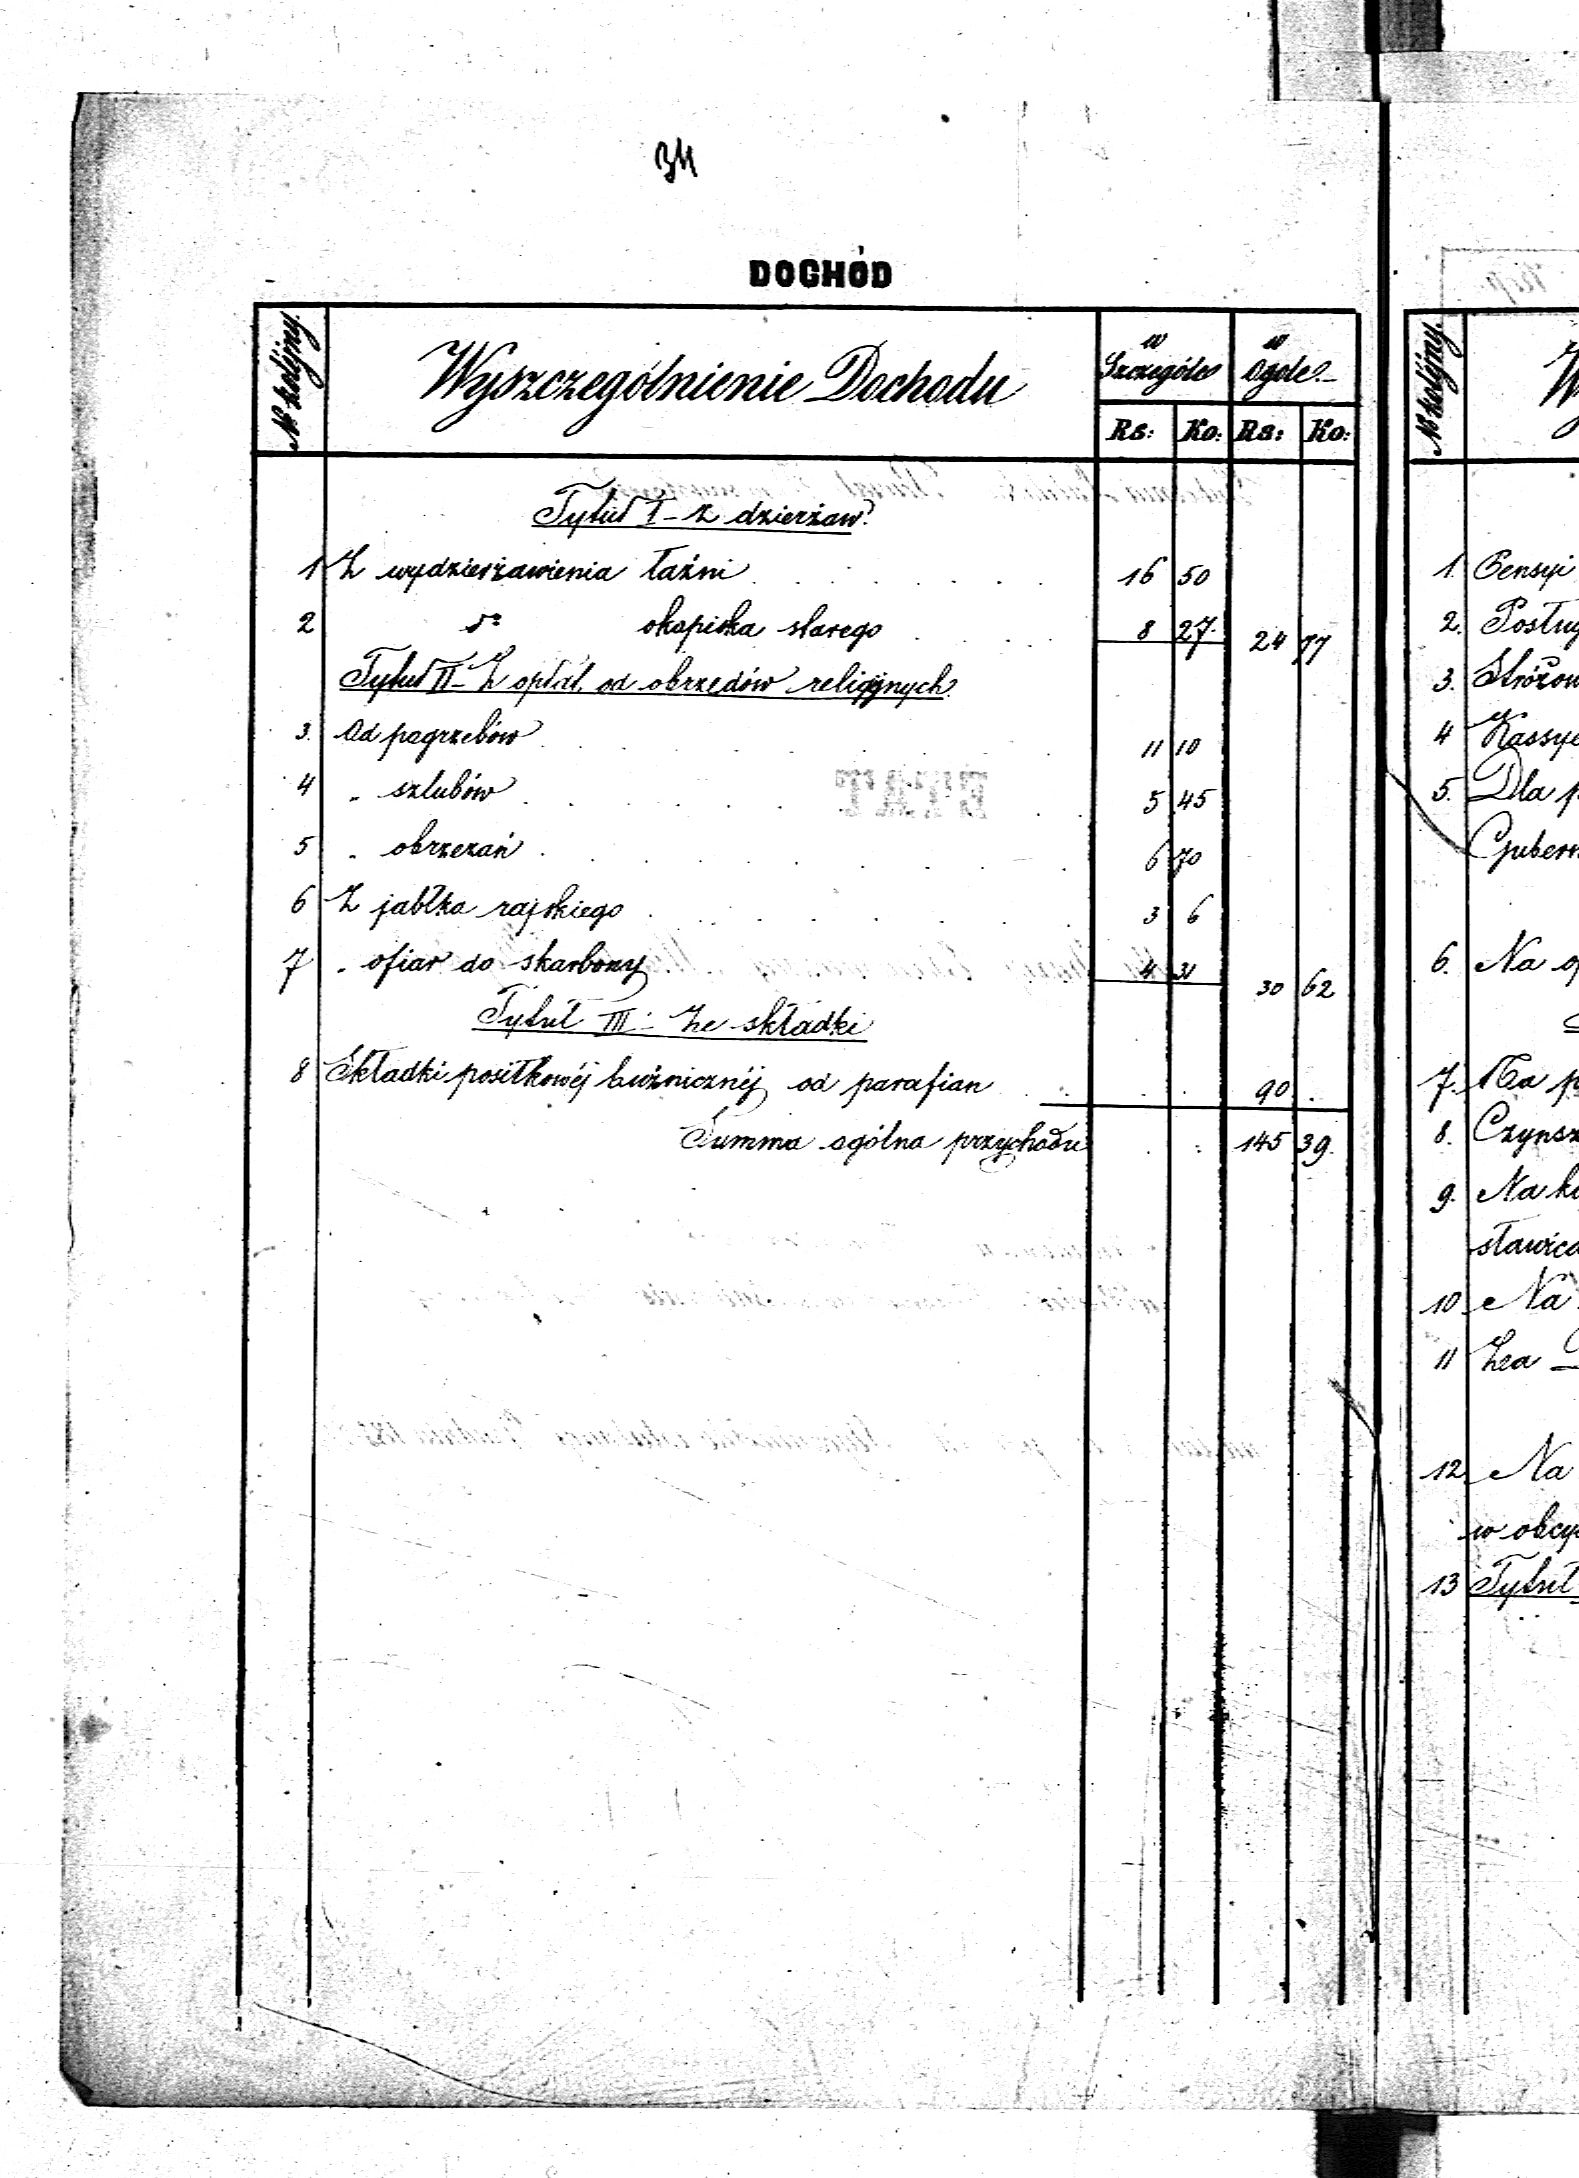 34
DOCHÓD
№ kolejny. Wyszczególnienie Dochodu w Szczególe w Ogóle
Rs: Ko: Rs: Ko:
Tytuł I - z dzierżaw
1 Z wydzierżawienia łaźni 16 50
2 do okopiska starego 8 27 24 77
Tytuł II - Z opłat od obrzędów religijnych
3. Od pogrzebów 11 10
4 " szlubów 5 45
5 " obrzezań 6 70
6 Z jabłka rajskiego 3 6
7 " ofiar do skarbony 4 31 30 62
Tytuł III - Ze składki
8 Składki posiłkowéj bużnicznéj od parafian 90
Summa ogólna przychodu 145 39
№ kolejny.
1. Pensyi
2.
3.
4
5. Dla
6. Na
7. Na
8.
9. Na
10 Na
11
12 Na
w
13 Tytuł